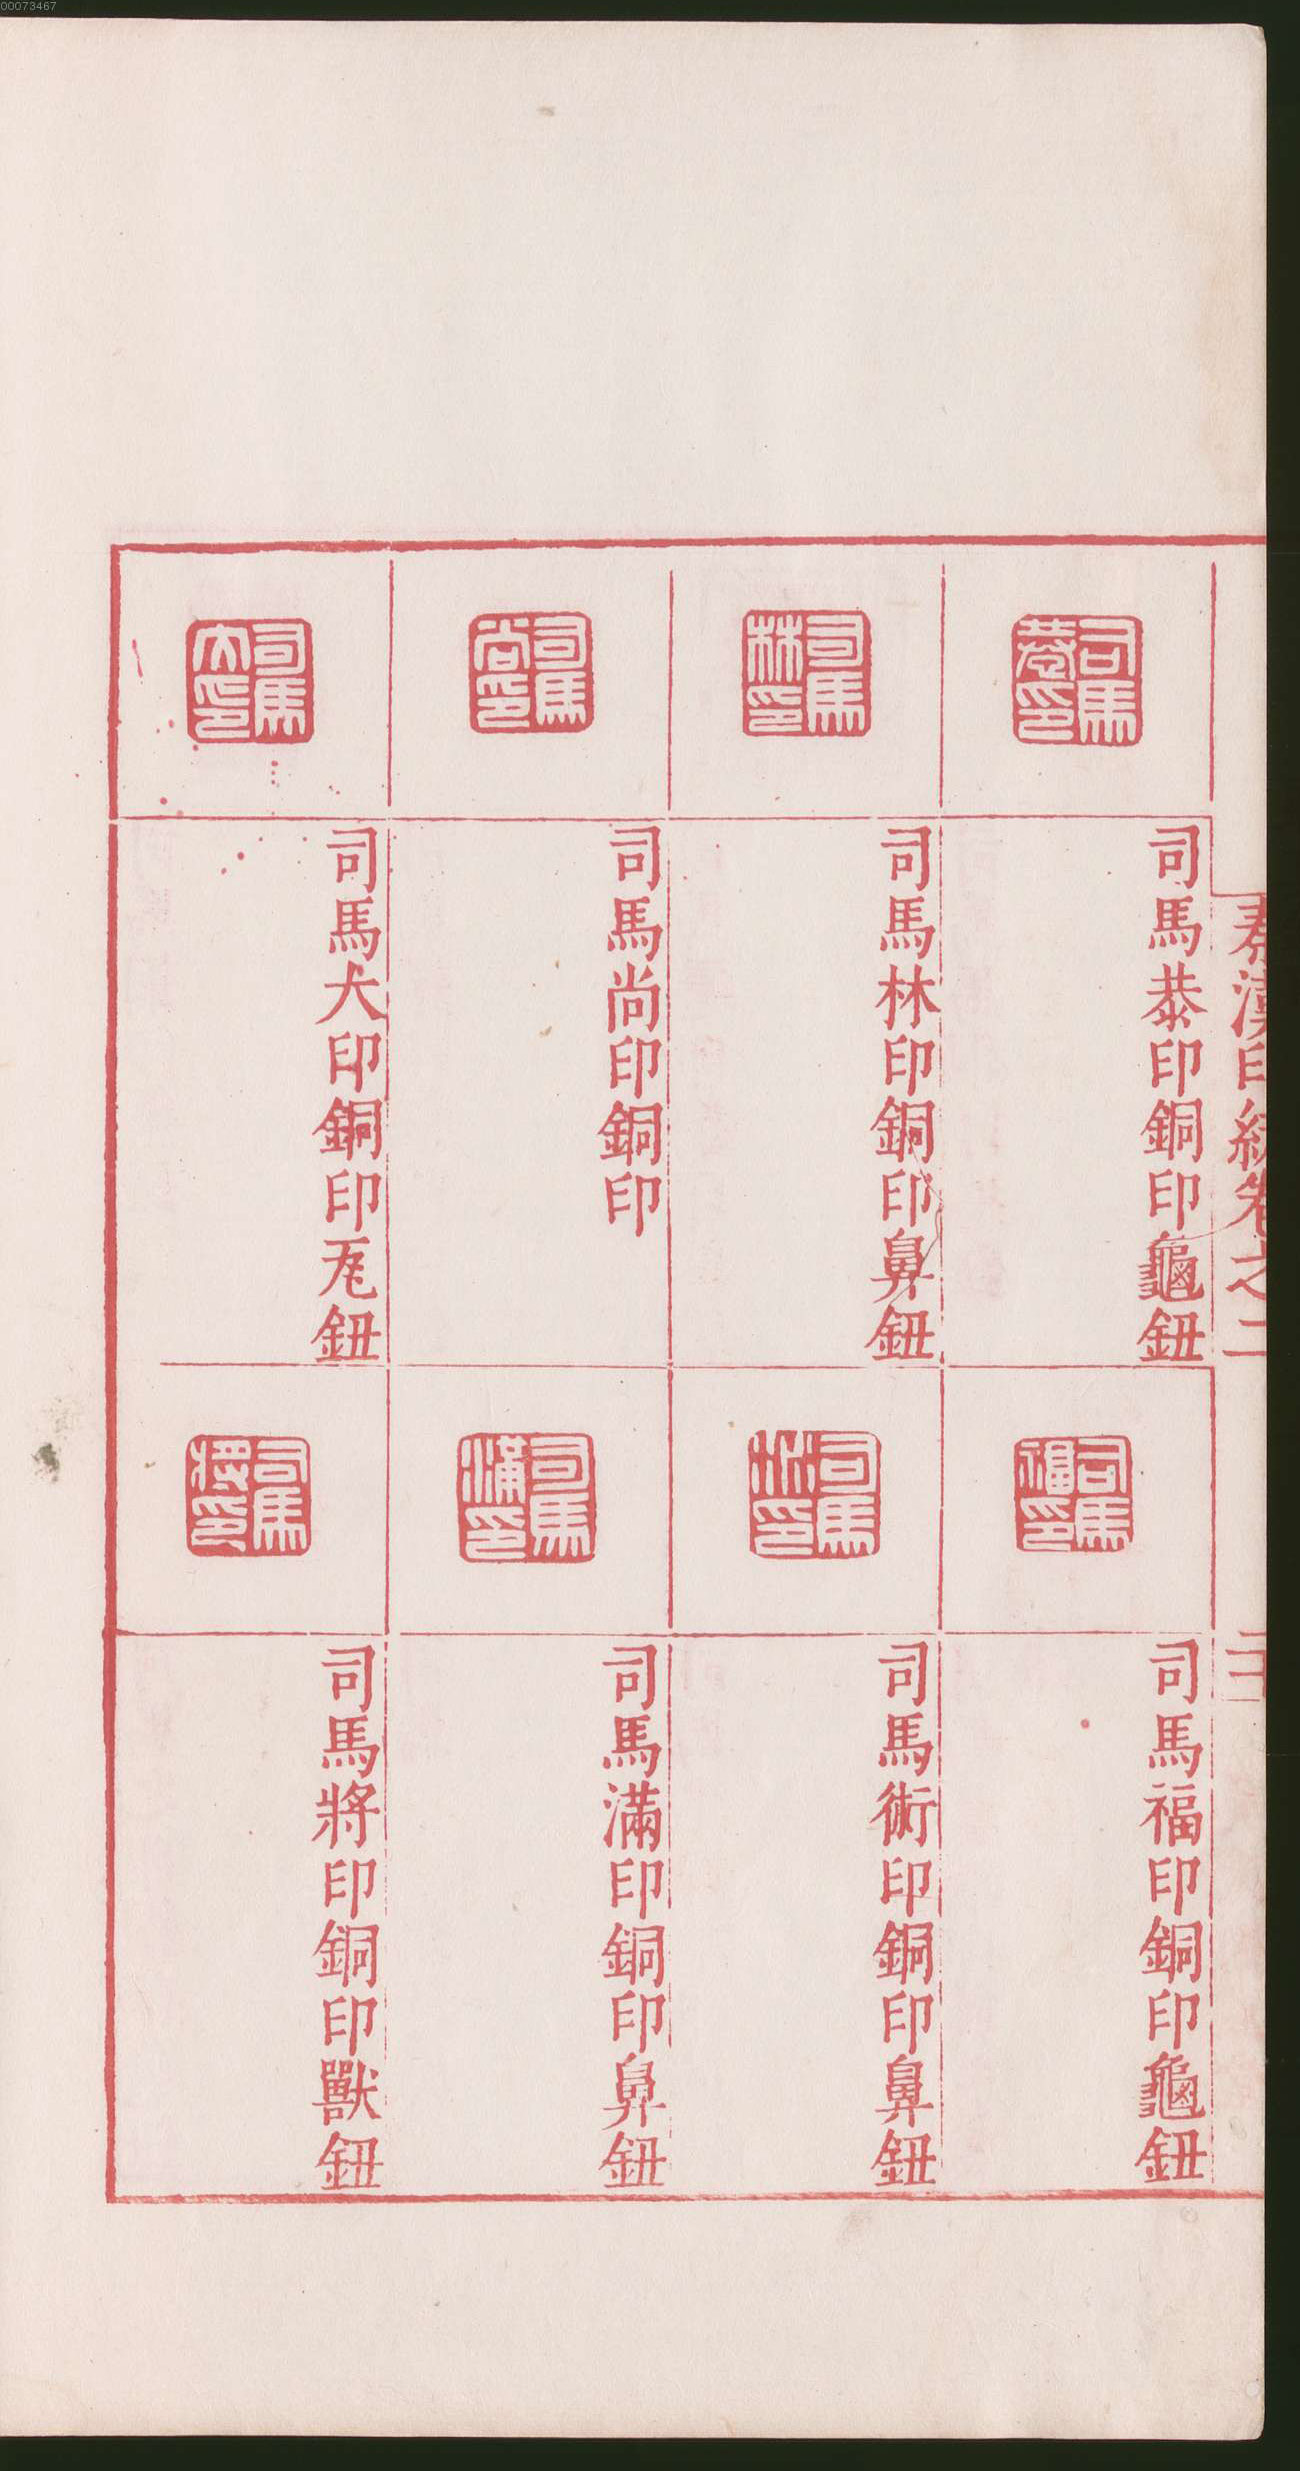 00073467
秦漢印統卷之二
司馬㳟印
司馬恭印銅印龜鈕
司馬林印
司馬林印銅印鼻鈕
司馬尚印
司馬尚印銅印
司馬犬印
司馬犬印銅印瓦鈕
司馬福印
司馬福印銅印龜鈕
司馬印
司馬術印銅印鼻鈕
司馬滿印
司馬滿印銅印鼻鈕
司馬將印
司馬將印銅印獸鈕